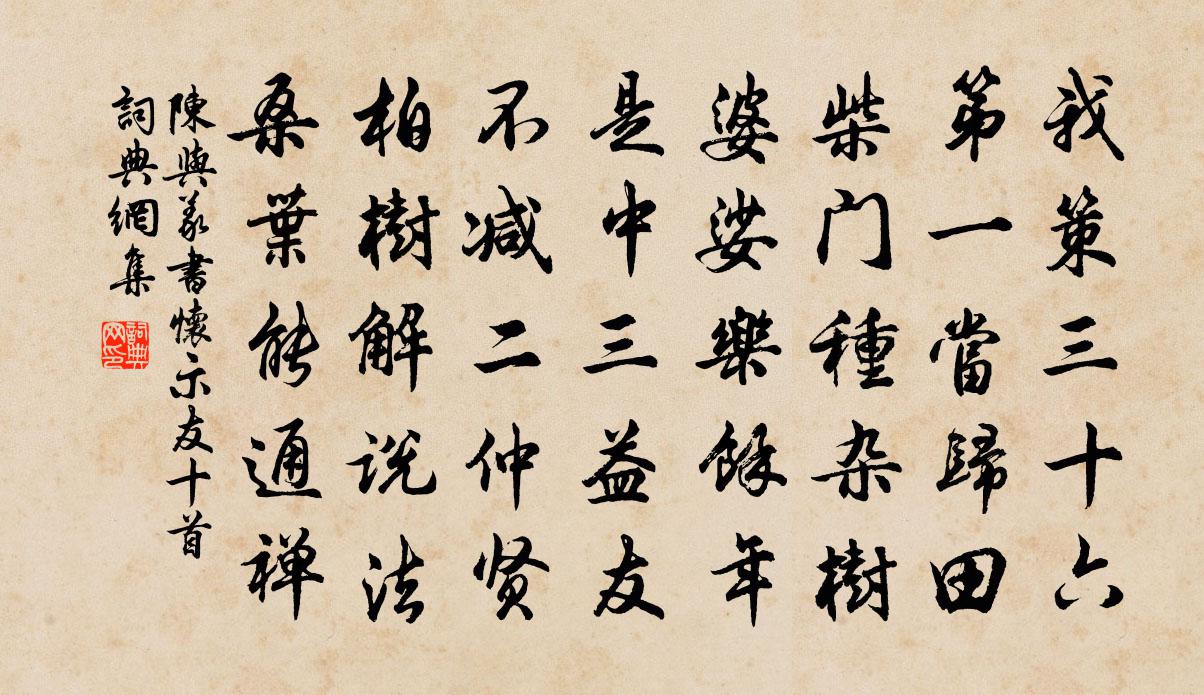 我策三十六
第一當歸田
柴门種杂樹
婆娑樂餘年
是中三益友
不减二仲贤
柏樹解説法
桑葉能通禅
陳與義書懷示友十首
詞典網集
詞典網印